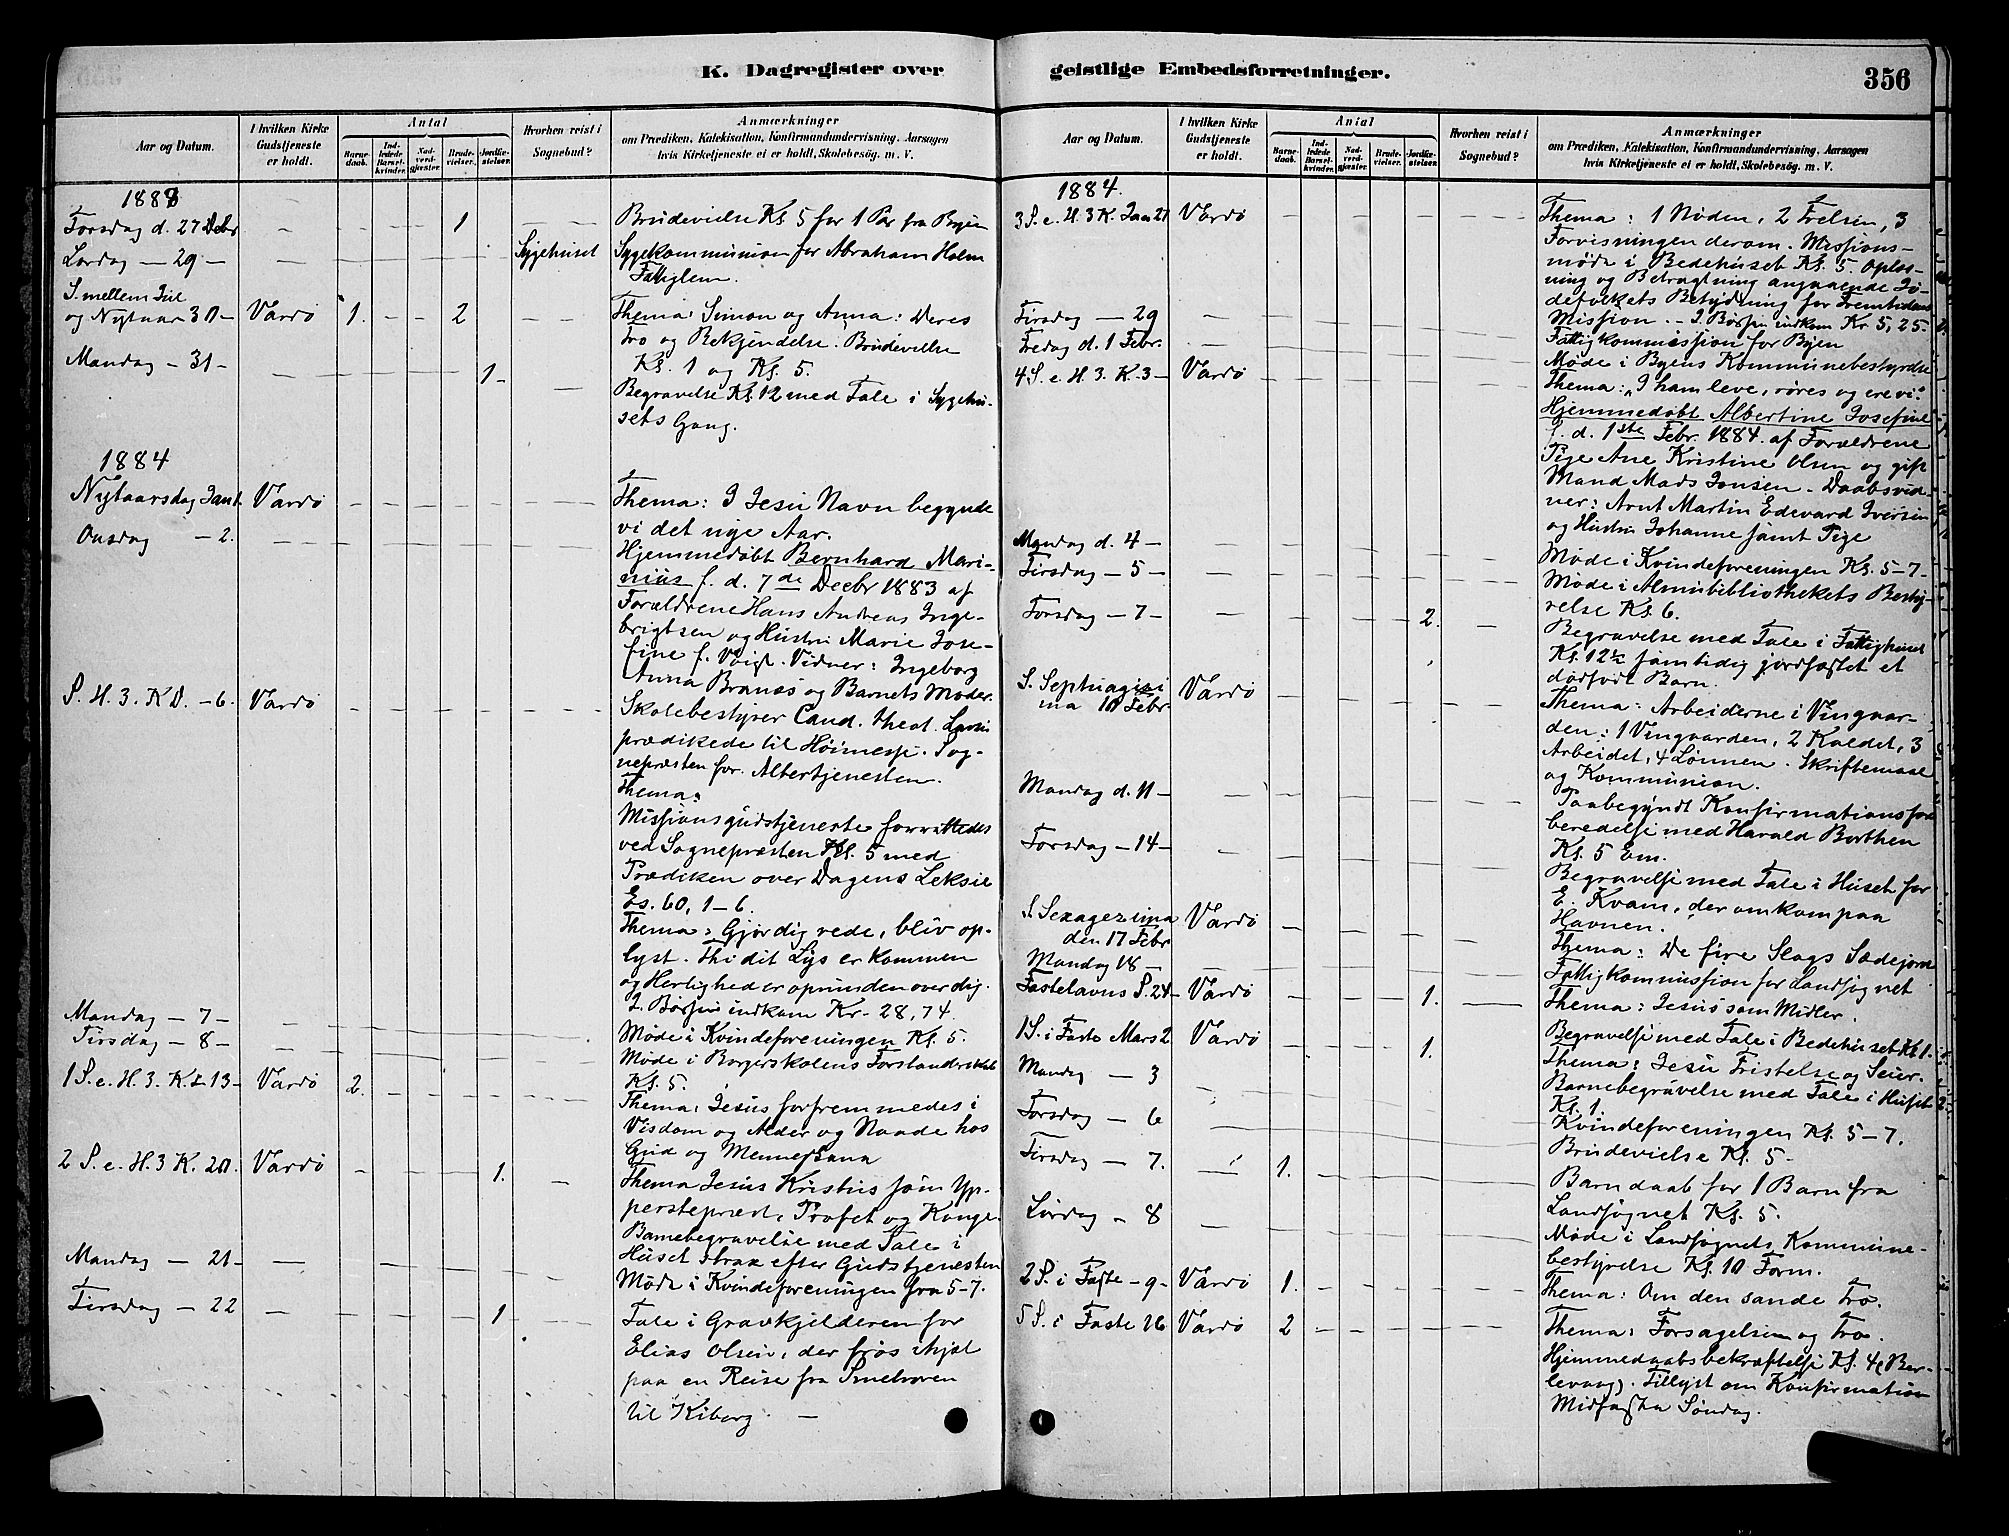 K. Dagregister over
Aar og Datum.
I hvilken Kirke Gudstjeneste er holdt.
Antal
Barne-daab.
Ind-ledede Barsel-kvinder.
Nad-verd-gjæster.
Brude-vielser.
Jordfæ-stelser.
Hvorhen reist i Sognebud?
Anmærkninger
om Prædiken, Katekisation, Konfirmandundervisning, Aarsagen
hvis Kirketjeneste ei er holdt, Skolebesøg. m. V.
1883
Torsdag d. 27 Decbr 1 Brudevielse Kl. 5 for 1 Par fra Byen
Lørdag — 29 — Sygehuset Sygekommunion for Abraham Holm
Fattiglem.
S. mellem Jul
og Nytaar 30 — Vardö 1. 2 Thema: Simon og Anna: Deres
Tro og Bekjendelse. Brudevielse
Mandag — 31 — 1 Kl. 1 og Kl. 5.
Begravelse Kl. 12 med Tale i Sygehu-
sets Gang.
1884
Nytaarsdag Jan 1. Vardö Thema: I Jesu Navn begynde
vi det nye Aar.
Onsdag — 2. Hjemmedöbt Bernhard Mari-
nius f. d. 7de Decbr 1883 af
Forældrene Hans Andreas Inge-
brigtsen og Hustru Marie Jose-
fine f. Voigt. Vidner: Ingeborg
Anna Branæs og Barnets Moder.
S. H. 3. K D. — 6. Vardö Skolebestyrer Cand. theol.
prædikede til Höimesse. Sog-
nepræsten for. Altertjenesten.
Thema:
Missionsgudstjeneste forrettedes
ved Sognepræsten Kl. 5 med
Prædiken over Dagens Leksie
Es. 60, 1-6.
Thema: Gjör dig rede, bliv op-
lyst. Thi dit Lys er kommen
og Herlighed er oprunden over dig.
I Bössen indkom Kr. 28,74.
Mandag — 7 — Möde i Kvindeforeningen Kl. 5.
Tirsdag — 8 — Möde i Borgerskolens Forstanderskab
Kl. 5.
1 S. e. H. 3. K. 13 — Vardö 2. Thema: Jesus forfremmedes i
Visdom og Alder og Naade hos
Gud og Menneskene
2 S. e. H. 3 K. 20. Vardö 1. Thema Jesus Kristus som Yp-
persteprest, Profet og Konge.
Barnebegravelse med Tale i
Huset strax efter Gudstjenesten
Mandag — 21 — Möde i Kvindeforeningen fra 5-7.
Tirsdag — 22 1 Tale i Gravkjelderen for
Elias Olsen, der frös ihjel
paa en Reise fra
til Kiberg. —
geistlige Embedsforretninger.
356
Aar og Datum.
I hvilken Kirke Gudstjeneste er holdt.
Antal
Barne-daab.
Ind-ledede Barsel-kvinder.
Nad-verd-gjæster.
Brude-vielser.
Jordfæ-stelser.
Hvorhen reist i Sognebud?
Anmærkninger
om Prædiken, Katekisation, Konfirmandundervisning, Aarsagen
hvis Kirketjeneste ei er holdt, Skolebesög. m. V.
1884.
3 S. e. H. 3 K. Jan 27 Vardö Thema: 1 Nöden, 2 Frelsen, 3
Forvisningen derom. Missions-
möde i Bedehuset Kl. 5. Oplæs-
ning og Betragtning angaaende Jö-
defolkets Betydning for Fremtidens
Mission. — I Bössen indkom Kr. 5,25.
Tirsdag — 29 Fattigkommission for Byen
Fredag d. 1 Febr. Möde i Byens Kommunebestyrelse
4 S. e. H. 3. K. 3 — Vardö Thema: I ham leve, röres og ere vi.
Hjemmedöbt Albertine Josefine
f. d. 1ste Febr. 1884 af Forældrene
Pige Ane Kristine Olsen og gift
Mand Mads Jonsen. Daabsvid-
ner: Arnt Martin Edevard Iversen
og Hustru Johanne samt Pige
Mandag d. 4 — Möde i Kvindeforeningen Kl. 5-7-
Tirsdag — 5 — Möde i Almubibliothekets Besty-
relse Kl. 6.
Torsdag — 7 — 2. Begravelse med Tale i Fattighuset
Kl. 12½ samtidig jordfæstet et
dödfödt Barn.
S. Septuagesi
ma 10 Febr Vardö Thema: Arbeiderne i Vingaar-
den: 1 Vingaarden, 2 Kaldet, 3
Arbeidet, 4 Lönnen. Skriftemaal
og Kommunion.
Mandag d. 11 — Paabegyndt Konfirmationsfor
beredelse med Harald Borthen
Kl. 5 Em.
Torsdag — 14 — Begravelse med Tale i Huset for
E. Kvam, der omkom paa
Havnen.
S. Sexagesima
den 17 Febr Vardö Thema: De fire Slags Sædejord
Mandag 18 — Fattigkommission for Landsognet
Fastelavns S. 24 — Vardö 1. Thema: Jesus som Midler.
Begravelse med Tale i Bedehuset Kl 1.
1 S. i Faste Mars 2 Vardö 1. Thema: Jesu Fristelse og Seier.
Barnebegravelse med Tale i Huset
Kl. 1
Mandag — 3 Kvindeforeningen Kl. 5-7.
Torsdag — 6 Brudevielse Kl. 5 —
Tirsdag — 7. 1. Barndaab for 1 Barn fra
Landsognet Kl. 5.
Lördag — 8 Möde i Landsognets Kommune-
bestyrelse Kl. 10 Form.
2 S. i Faste — 9 — Vardö 1. Thema: Om den sande Tro.
5 S. i Faste 26 Vardö 2 Thema: Forsagelsen og Tro.
Hjemmedaabsbekræftelse Kl. 4 (Ber-
levaag). Tillyst om Konfirmation
Midfaste Söndag.